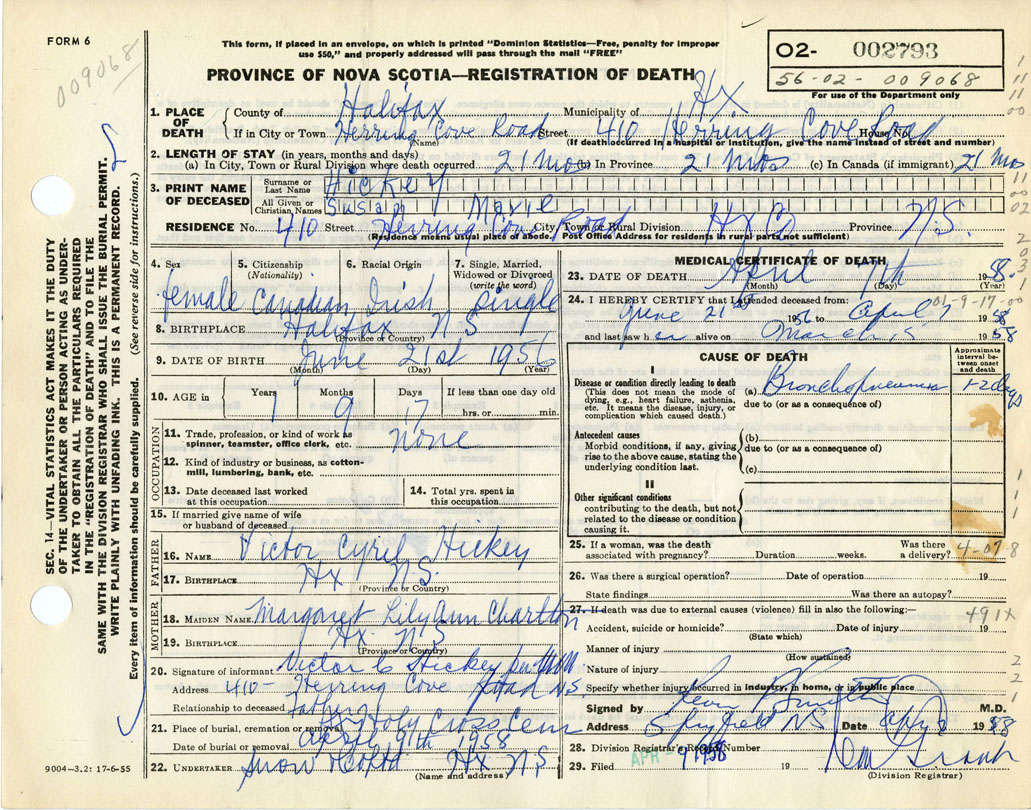 FORM 6
009068
This form, if placed in an envelope, on which is printed "Dominion Statistics—Free, penalty for improper
use $50," and properly addressed will pass through the mail "FREE"
PROVINCE OF NOVA SCOTIA—REGISTRATION OF DEATH
O2- 002793
56-02-009068
For use of the Department only
1. PLACE OF DEATH
County of Halifax Municipality of Hx
If in City or Town Herring Cove Road Street 410 Herring Cove Road House No.
(Name) (If death occurred in a hospital or institution, give the name instead of street and number)
2. LENGTH OF STAY (in years, months and days)
(a) In City, Town or Rural Division where death occurred 21 mos (b) In Province 21 mos (c) In Canada (if immigrant) 21 mos
3. PRINT NAME OF DECEASED
Surname or Last Name Hickey
All Given or Christian Names Susan Marie
RESIDENCE No. 410 Street Herring Cove Road City, Town or Rural Division Hx Co Province N.S.
(Residence means usual place of abode. Post Office Address for residents in rural parts not sufficient)
4. Sex 5. Citizenship (Nationality) 6. Racial Origin 7. Single, Married, Widowed or Divorced (write the word)
female Canadian Irish single
8. BIRTHPLACE Halifax N S
(Province or Country)
9. DATE OF BIRTH June 21st 1956
(Month) (Day) (Year)
10. AGE in Years Months Days If less than one day
1 9 17 hrs. or min.
OCCUPATION
11. Trade, profession, or kind of work as spinner, teamster, office clerk, etc. None
12. Kind of industry or business, as cotton-mill, lumbering, bank, etc.
13. Date deceased last worked at this occupation
14. Total yrs. spent in this occupation
15. If married give name of wife or husband of deceased
FATHER
16. NAME Victor Cyril Hickey
17. BIRTHPLACE Hx N.S.
(Province or Country)
MOTHER
18. MAIDEN NAME Margaret Lily Ann Charlton
19. BIRTHPLACE Hx N.S
(Province or Country)
20. Signature of informant Victor C Hickey per
Address 410- Herring Cove Road NS
Relationship to deceased father
21. Place of burial, cremation or removal Holy Cross Cem
Date of burial or removal April 9th 1958
22. UNDERTAKER Snow Hx N.S
(Name and address)
9004—3.2: 17-6-55
SEC. 14—VITAL STATISTICS ACT MAKES IT THE DUTY
OF THE UNDERTAKER OR PERSON ACTING AS UNDER-
TAKER TO OBTAIN ALL THE PARTICULARS REQUIRED
IN THE "REGISTRATION OF DEATH" AND TO FILE THE
SAME WITH THE DIVISION REGISTRAR WHO SHALL ISSUE THE BURIAL PERMIT.
WRITE PLAINLY WITH UNFADING INK. THIS IS A PERMANENT RECORD.
Every item of information should be carefully supplied. (See reverse side for instructions.)
MEDICAL CERTIFICATE OF DEATH
23. DATE OF DEATH April 7th 1958.
(Month) (Day) (Year)
01-9-17-00
24. I HEREBY CERTIFY that I attended deceased from:
June 21st 1956 to April 7 1958
and last saw her alive on March 5 1958
CAUSE OF DEATH
Approximate interval between onset and death
I
Disease or condition directly leading to death
(This does not mean the mode of dying, e.g., heart failure, asthenia, etc. It means the disease, injury, or complication which caused death.)
(a) Bronchopneumonia 1-2 days
due to (or as a consequence of)
Antecedent causes
Morbid conditions, if any, giving rise to the above cause, stating the underlying condition last.
(b)
due to (or as a consequence of)
(c)
II
Other significant conditions
contributing to the death, but not related to the disease or condition causing it.
25. If a woman, was the death associated with pregnancy? Duration weeks. Was there a delivery?
4-07-8
26. Was there a surgical operation? Date of operation 19
State findings Was there an autopsy?
27. If death was due to external causes (violence) fill in also the following:—
491X
Accident, suicide or homicide? Date of injury 19
(State which)
Manner of injury
(How sustained)
Nature of injury
Specify whether injury occurred in industry, in home, or in public place
Signed by Kevin Smith M.D.
Address Spryfield NS Date Apr 8 1958
28. Division Registrar's Record Number
29. Filed APR - 9 1958 19
(Division Registrar)